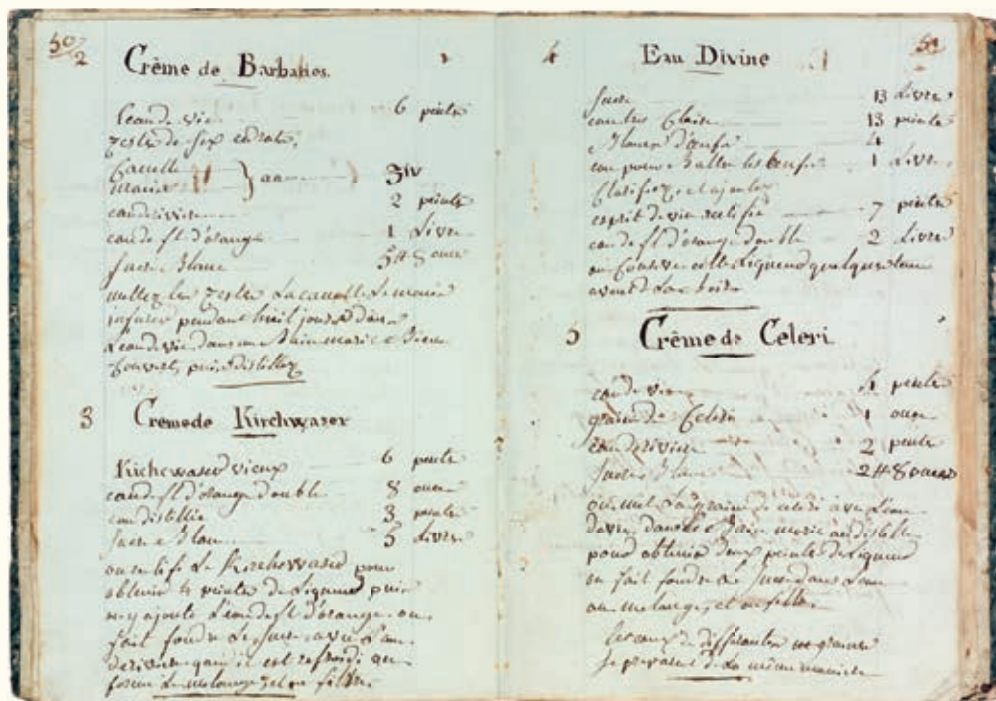 50
2
Crême de Barbades
Eau de vie 6 peinte
zeste de six cedrats
Canelle
Macis } aa ʒiv
eau de riviere 2 peinte
eau de fl. d'orange 1 Livre
Sucre Blanc 5# 8 once
mettez les zeste La canelle Le macis
infuser pendant huit jours dans
L'eau de vie dans un Bain marie Bien
Couvert, puis distillez
3
Creme de Kirchwaser
Kirchewaser vieux 6 peinte
eau de fl. d'orange double 8 once
eau distillée 3 peinte
Sucre Blanc 3 Livre
on rectifie Le Kirchewaser pour
obtenir 4 peinte de Liqueur puis
on y ajoute L'eau de fl. d'orange on
fait fondre Le sucre avec L'eau
de riviere quan il est refroidi on
forme Le melange et on filtre.
4
Eau Divine
Sucre 13 Livre
eau tres Claire 13 peinte
Blancs d'œufs 4
eau pour Battre les œufs 1 Livre
Clarifiez, et ajoutez
esprit de vin rectifié 7 peinte
eau de fl. d'orange double 2 Livre
on Conserve cette Liqueur quelque tems
avant de La boire
5
Crême de Celeri
eau de vie 4 peinte
graine de Celeri 1 once
eau de riviere 2 peinte
Sucre Blanc 2# 8 once
on met La graine de celeri avec L'eau
de vie, dans Le Bain marie on distille
pour obtenir deux peinte de Liqueur
on fait fondre Le Sucre dans L'eau
on melange, et on filtre.
Les eaux de differentes graines
se preparent de La même maniere